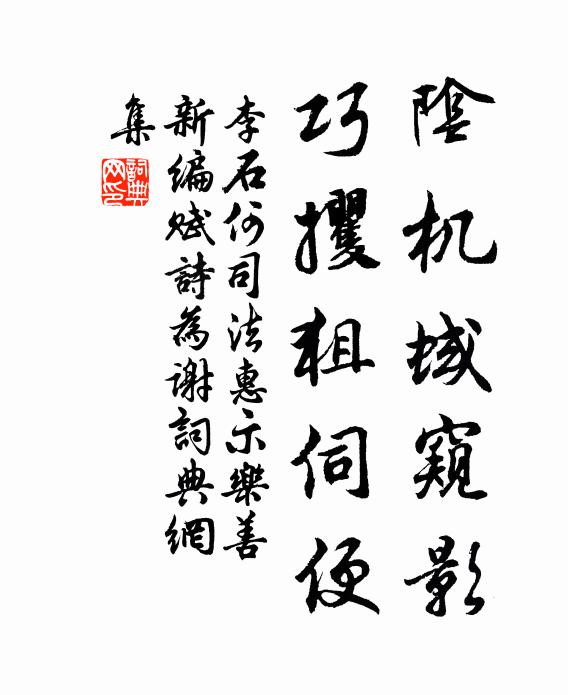 陰机域窺影
巧攫狙伺便
李石何司法惠示樂善
新编赋詩為谢詞典網
集
詞典网印